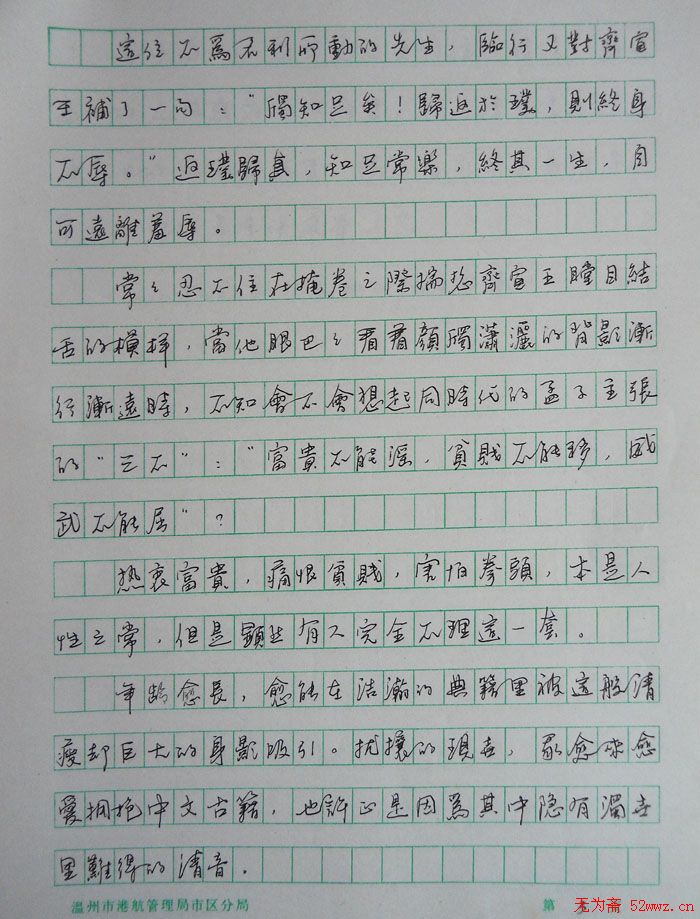 這位不爲名利所動的先生，臨行又對齊宣
王補了一句：“斶知足矣！歸返於璞，則終身
不辱。”返璞歸真，知足常樂，終其一生，自
可遠離羞辱。
常々忍不住在掩卷之際揣想齊宣王瞠目結
舌的模样，當他眼巴々看着顏斶瀟灑的背影漸
行漸遠時，不知會不會想起同時代的孟子主張
的“三不”：“富貴不能淫，貧賤不能移，威
武不能屈”？
热衷富貴，痛恨貧賤，害怕拳頭，本是人
性之常，但是顯然有人完全不理這一套。
年龄愈長，愈能在浩瀚的典籍里被這般清
瘦却巨大的身影吸引。扰攘的現世，我愈來愈
愛拥抱中文古籍，也許正是因爲其中隐有濁世
里難得的清音。
温州市港航管理局市区分局
第
无为斋 52wwz.cn